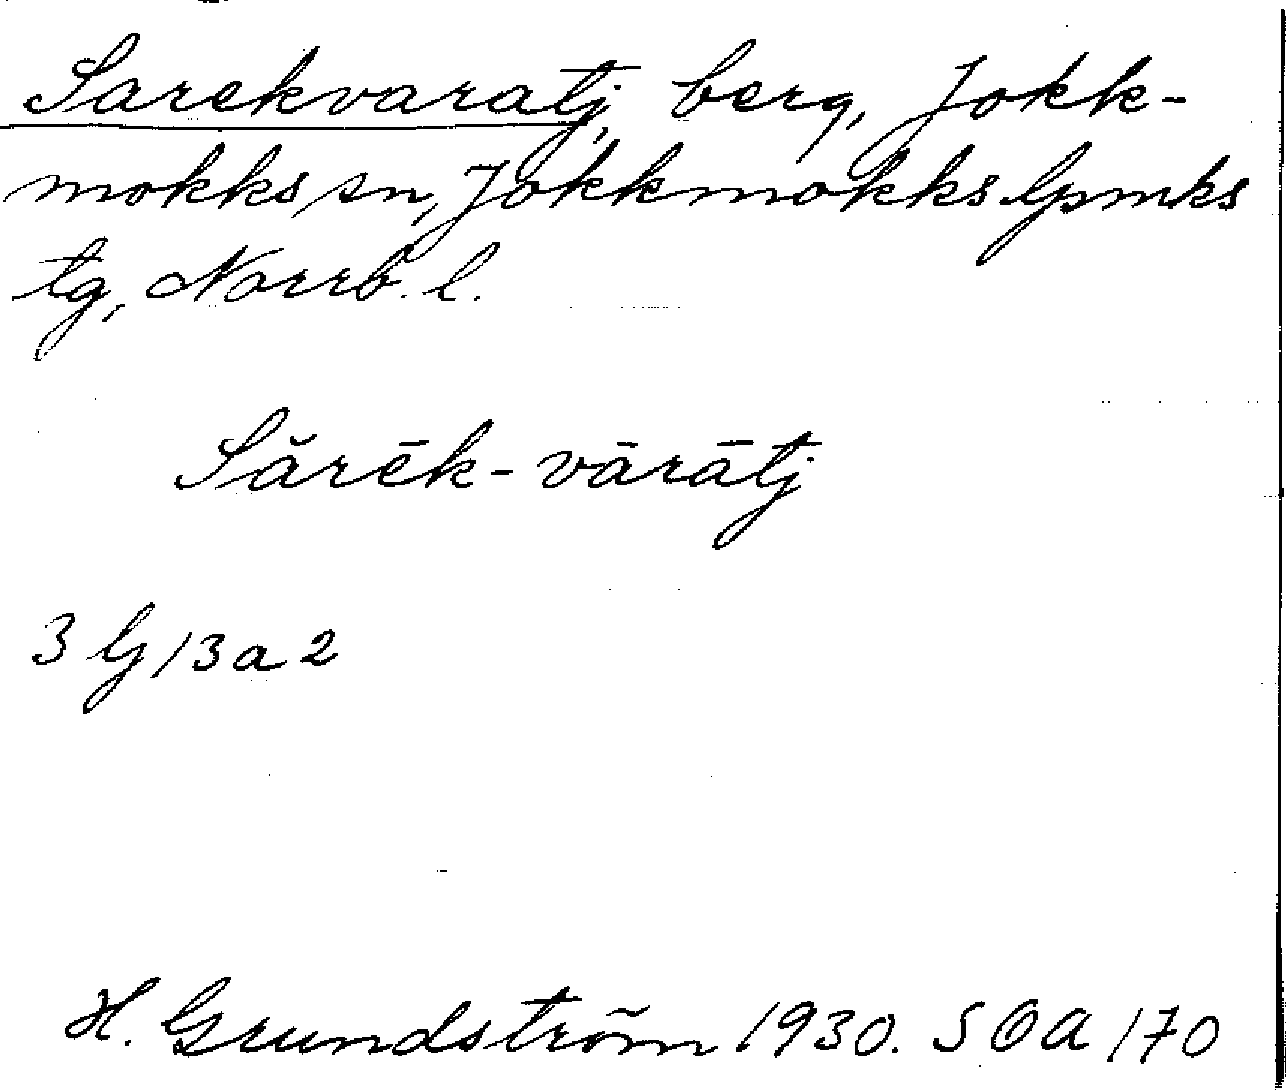 Sarekvaratj, berg, Jokk-
mokks sn, Jokkmokks lpmks
tg, Norrb. l.
Sărēk-vārātj
3 G 13 a 2
H. Grundström 1930. SOA 170